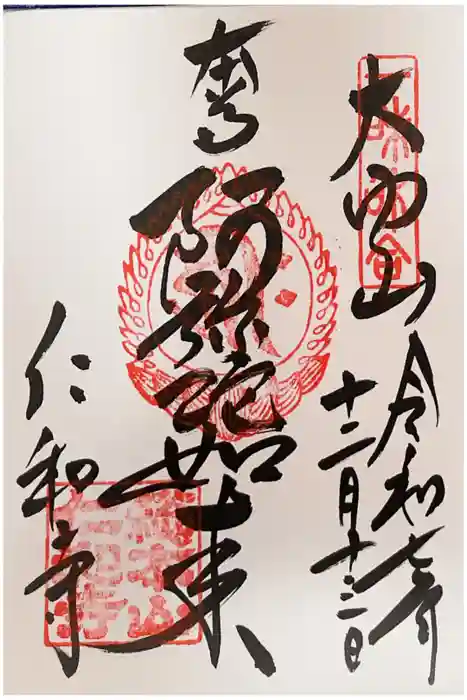 大内山
令和七年
十二月十三日
奉
阿弥陀如来
仁和寺